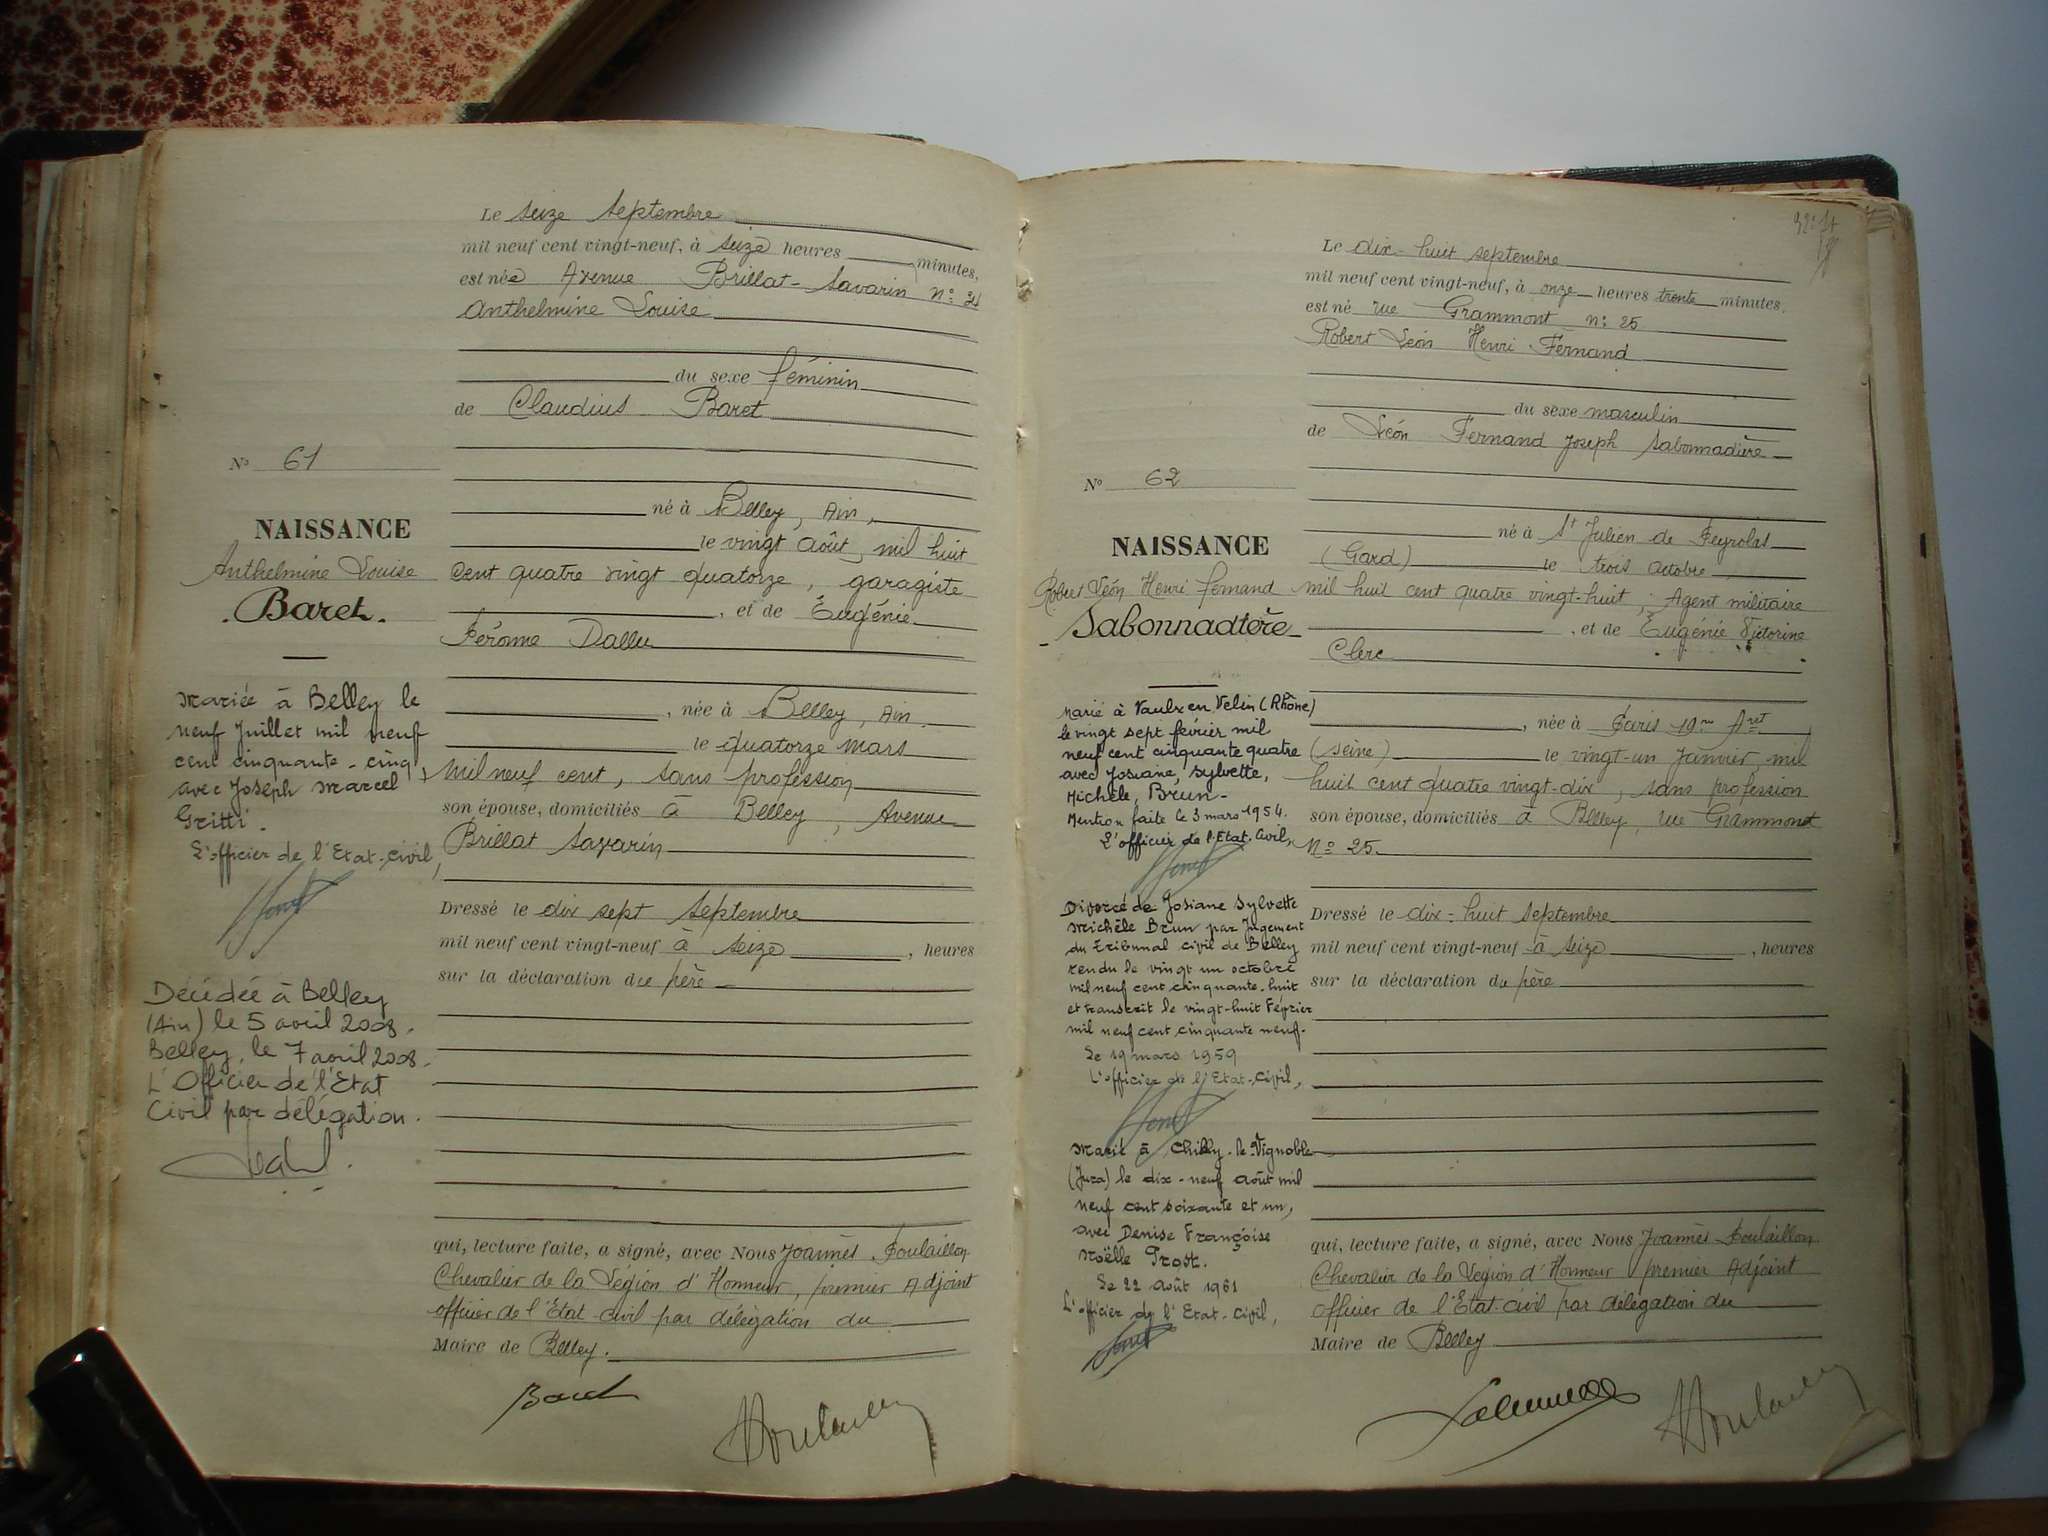 Le seize Septembre
mil neuf cent vingt-neuf, à seize heures minutes,
est née Avenue Brillat-Savarin N°
Anthelmine Louise
du sexe féminin
de Claudius Baret
N° 61
né à Belley, Ain,
NAISSANCE
le vingt Août, mil huit
Anthelmine Louise
cent quatre vingt quatorze, garagiste
Baret.
, et de Eugénie
Jérome Dallu
Mariée à Belley le
neuf Juillet mil neuf
cent cinquante-cinq,
avec Joseph Marcel
Gritti.
L'officier de l'Etat-civil,
, née à Belley, Ain.
le quatorze mars
mil neuf cent, sans profession
son épouse, domiciliés à Belley, Avenue
Brillat Savarin
Dressé le dix sept Septembre
mil neuf cent vingt-neuf à seize , heures
sur la déclaration du père
Décédée à Belley
(Ain) le 5 avril 2008.
Belley, le 7 avril 2008.
L'Officier de l'Etat
Civil par délégation.
qui, lecture faite, a signé, avec Nous Joannès Poulaillon
Chevalier de la Légion d'Honneur, premier Adjoint
officier de l'Etat civil par délégation du
Maire de Belley.
Baret
Le dix-huit septembre
mil neuf cent vingt-neuf, à onze heures trente minutes,
est né rue Grammont n° 25
Robert Léon Henri Fernand
du sexe masculin
de Léon Fernand Joseph Sabonnadière
N° 62
né à St Julien de Peyrolas
NAISSANCE
(Gard) le trois octobre
Robert Léon Henri Fernand
mil huit cent quatre vingt-huit, Agent militaire
Sabonnadière
, et de Eugénie Victorine
Clerc
Marié à Vaulx en Velin (Rhône)
le vingt sept février mil
neuf cent cinquante quatre
avec Josiane, Sylvette,
Michèle, Brun-
Mention faite le 3 mars 1954.
L'officier de l'Etat-Civil,
, née à Paris 19me Arrt
(Seine) le vingt-un Janvier, mil
huit cent quatre vingt-dix, sans profession
son épouse, domiciliés à Belley, rue Grammont
N° 25.
Divorcé de Josiane Sylvette
Michèle Brun par Jugement
du Tribunal civil de Belley
rendu le vingt un octobre
mil neuf cent cinquante-huit
et transcrit le vingt-huit Février
mil neuf cent cinquante neuf-
Le 19 mars 1959
L'officier de l'Etat-Civil,
Dressé le dix-huit Septembre
mil neuf cent vingt-neuf à seize , heures
sur la déclaration du père
Marié à Chilly-le-Vignoble
(Jura) le dix-neuf août mil
neuf cent soixante et un,
avec Denise Françoise
Noëlle Prost.
Le 22 Août 1961
L'officier de l'Etat-Civil,
qui, lecture faite, a signé, avec Nous Joannès Poulaillon
Chevalier de la Légion d'Honneur premier Adjoint
officier de l'Etat-civil par délégation du
Maire de Belley